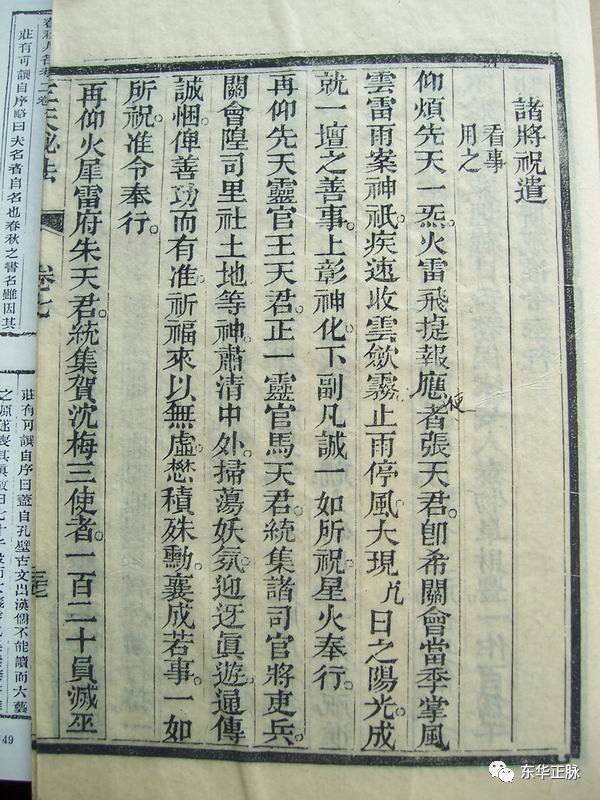 諸將祝遣
看事
用之
仰煩先天一炁火雷飛捷報應者張天君。卽希關會當季掌風
使
雲雷雨案神祇疾速收雲歛霧。止雨停風。大現日之陽光。成
就一壇之善事。上彰神化。下副凡誠。一如所祝。星火奉行。
再仰先天靈官王天君。正一靈官馬天君。統集諸司官將吏兵。
關會隍司里社土地等神。肅清中外。掃蕩妖氛。迎迓眞遊。逼傳
誠悃。俾善功而有准。祈福來以無虛。懋積殊勳。襄成若事。一如
所祝。准令奉行。
再仰火犀雷府朱天君。統集賀沈梅三使者。一百二十員滅巫
天秘法
卷七
莊有可譔自序略曰夫名者自名也春秋之書名雖因其
莊有可譔自序曰蓋自孔壁古文出漢儒不能讀而大藝
49
东华正脉